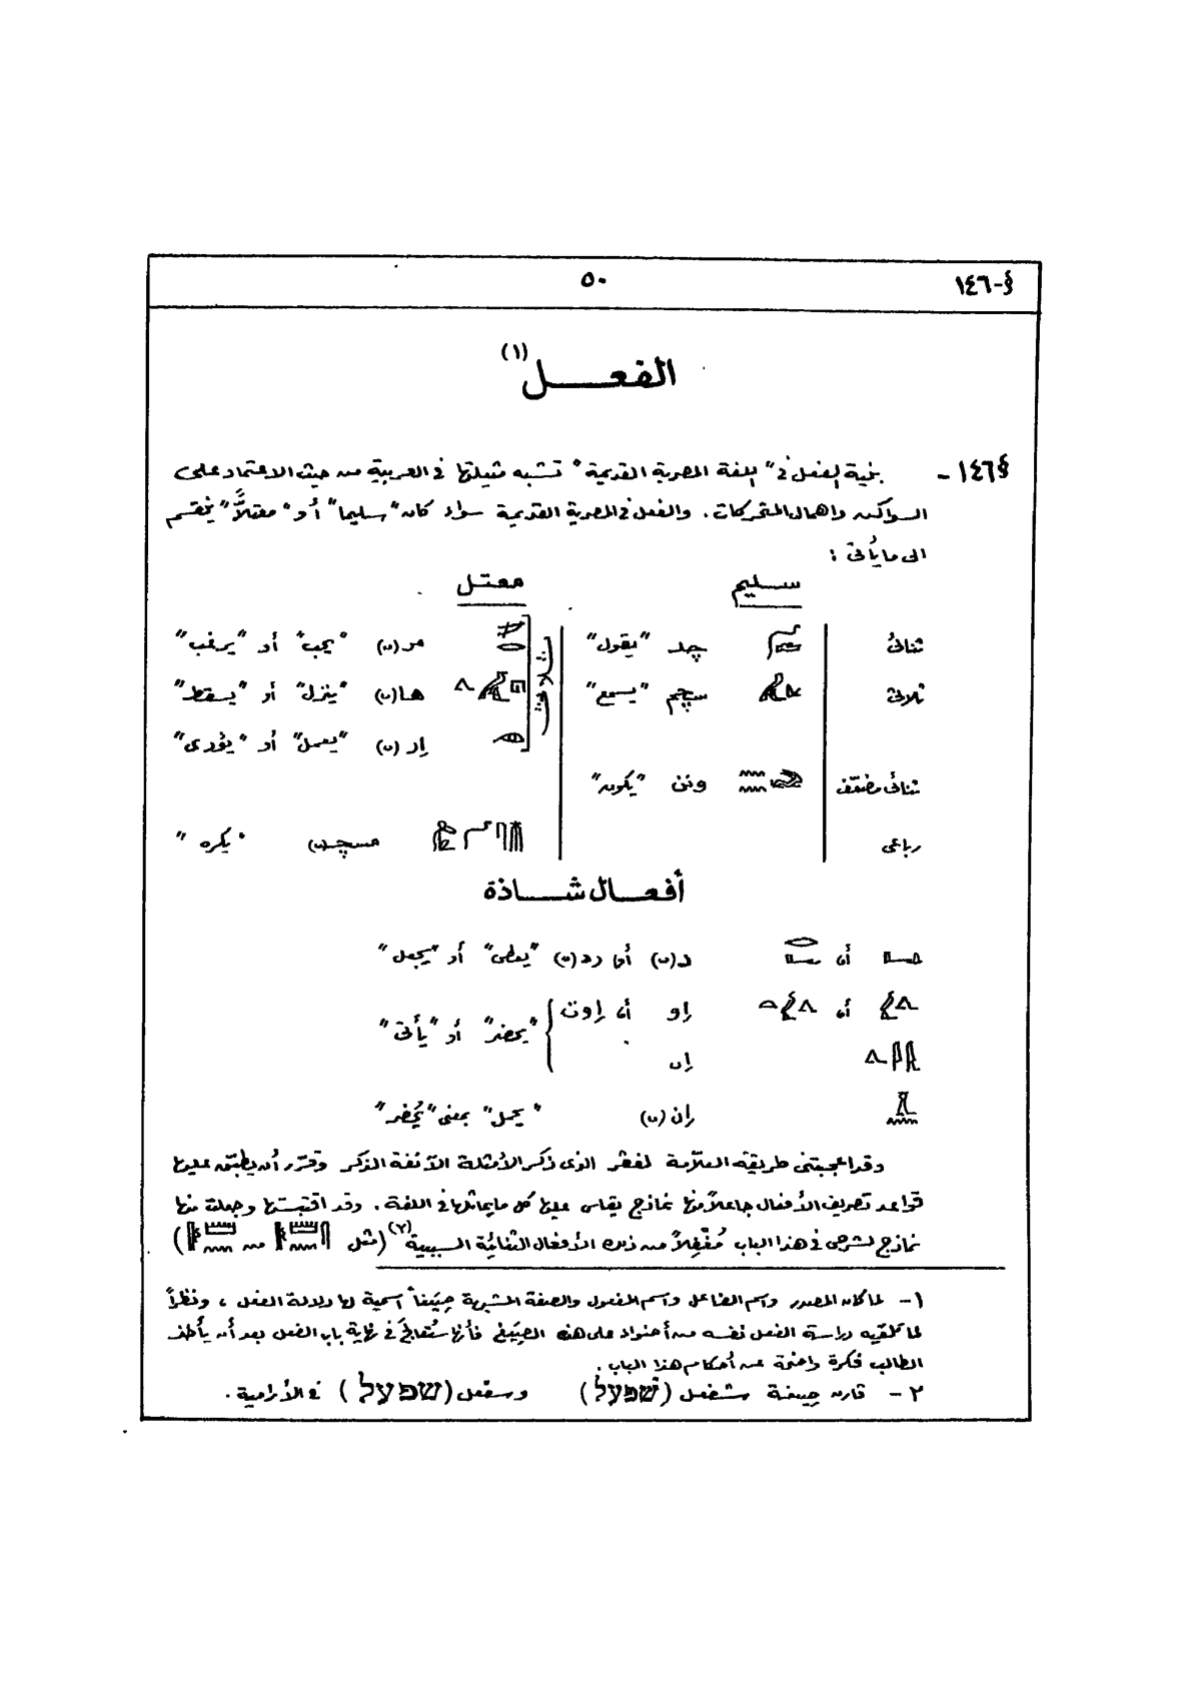 §-١٤٦
٥٠
الفعــل (١)
§١٤٦- بنية الفعل فى "اللغة المصرية القديمة" تشبه مثيلتها فى العربية من حيث الاعتماد على
السواكن واهمال المتحركات. والفعل فى المصرية القديمة سواء كان "سليما" أو "معتلاً" ينقسم
الى ما يأتى :
سليم معتل
ثنائى چد "يقول" ثلاثى مر(ى) "يحب" أو "يرغب"
ثلاثى سچم "يسمع" ها(ى) "ينزل" أو "يسقط"
إر(ى) "يعمل" أو "يؤدى"
ثنائى مضعّف ونن "يكون"
رباعى مسچد(ى) "يكره"
أفعال شاذة
أو د(ى) أو رد(ى) "يعطى" أو "يجعل"
أو إو أو إوت "يحضر" أو "يأتى"
إى
إن(ى) "يحمل" بمعنى "يُحضر"
وقد أعجبتنى طريقة العلاّمة لفڤر الذى ذكر الأمثلة الآنفة الذكر وقرّر أن يطبّق عليها
قواعد تصريف الأفعال جاعلاً منها نماذج يقاس عليها كل ما يماثلها فى اللغة. وقد اقتبستها وجعلت منها
نماذج لشرحى فى هذا الباب مُغْفِلاً من ذلك الأفعال الثنائية السببية (٢) (مثل من )
١- لما كان المصدر واسم الفاعل واسم المفعول والصفة المشبهة صِيَغاً اسمية لها دلالة الفعل ، ونظراً
لما تلقيه دراسة الفعل نفسه من أضواء على هذه الصِيَغ فأنها ستُعالجَ فى نهاية باب الفعل بعد أن يأخذ
الطالب فكرة واضحة عن أحكام هذا الباب.
٢- قارن صيغة شفعل (שפעל) وسفعل (שפעל) فى الأرامية.